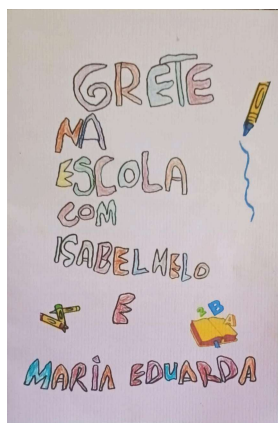 GRETE
NA
ESCOLA
COM
ISABEL MELO
E
MARIA EDUARDA